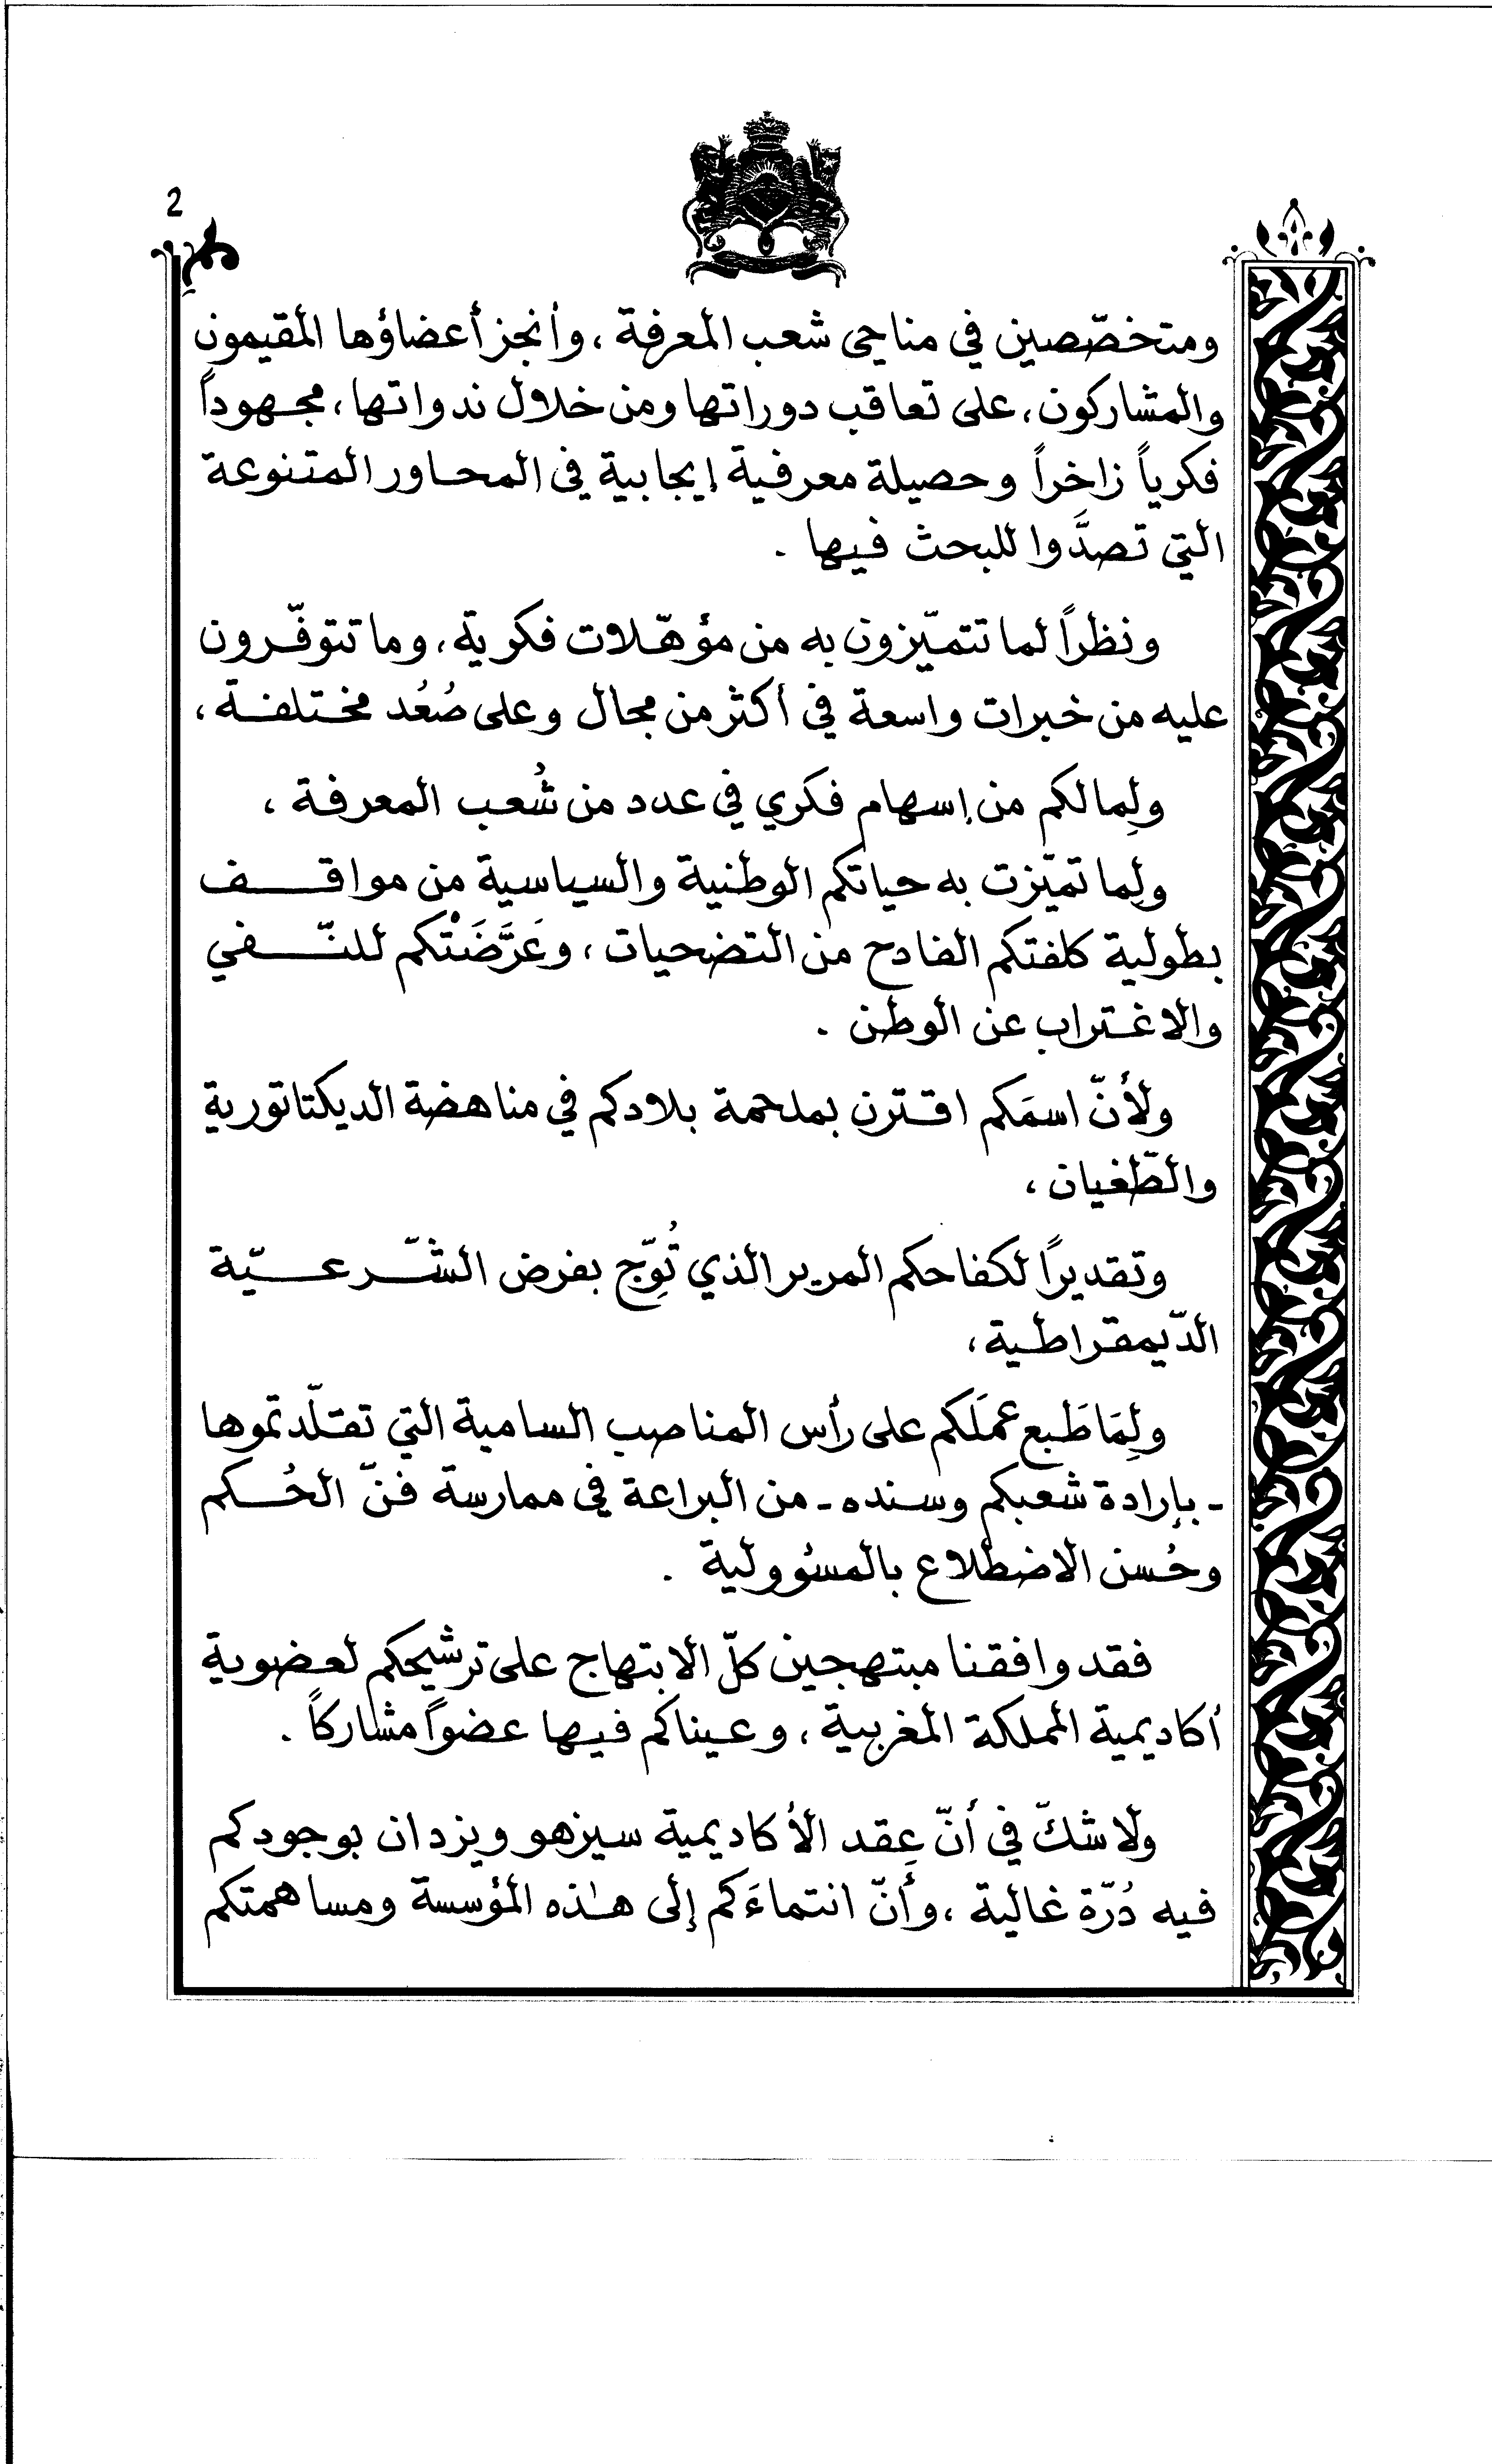 2
ومتخصّصين في مناحي شعب المعرفة ، وأنجز أعضاؤها المقيمون
والمشاركون، على تعاقب دوراتها ومن خلال ندواتها، مجهوداً
فكرياً زاخراً وحصيلة معرفية إيجابية في المحاور المتنوعة
التي تصدَّوا للبحث فيها .
ونظراً لما تتميّزون به من مؤهّلات فكرية، وما تتوفّرون
عليه من خبرات واسعة في أكثر من مجال وعلى صُعُد مختلفة،
ولِما لكم من إسهام فكري في عدد من شُعب المعرفة ،
ولِما تميّزت به حياتكم الوطنية والسياسية من مواقف
بطولية كلفتكم الفادح من التضحيات ، وعَرَّضَتْكم للنّفي
والاغتراب عن الوطن .
ولأنّ اسمَكم اقترن بملحمة بلادكم في مناهضة الديكتاتورية
والطّغيان ،
وتقديراً لكفاحكم المرير الذي تُوِّج بفرض الشّرعيّة
الدّيمقراطية،
ولِمَا طَبع عملَكم على رأس المناصب السامية التي تقلّدتموها
- بإرادة شعبكم وسنده - من البراعة في ممارسة فنّ الحُكم
وحُسن الاضطلاع بالمسؤولية .
فقد وافقنا مبتهجين كلّ الابتهاج على ترشيحكم لعضوية
أكاديمية المملكة المغربية ، وعيناكم فيها عضواً مشاركاً .
ولا شكّ في أنّ عِقد الأكاديمية سيزهو ويزدان بوجودكم
فيه دُرّة غالية ، وأنّ انتماءَكم إلى هذه المؤسسة ومساهمتكم